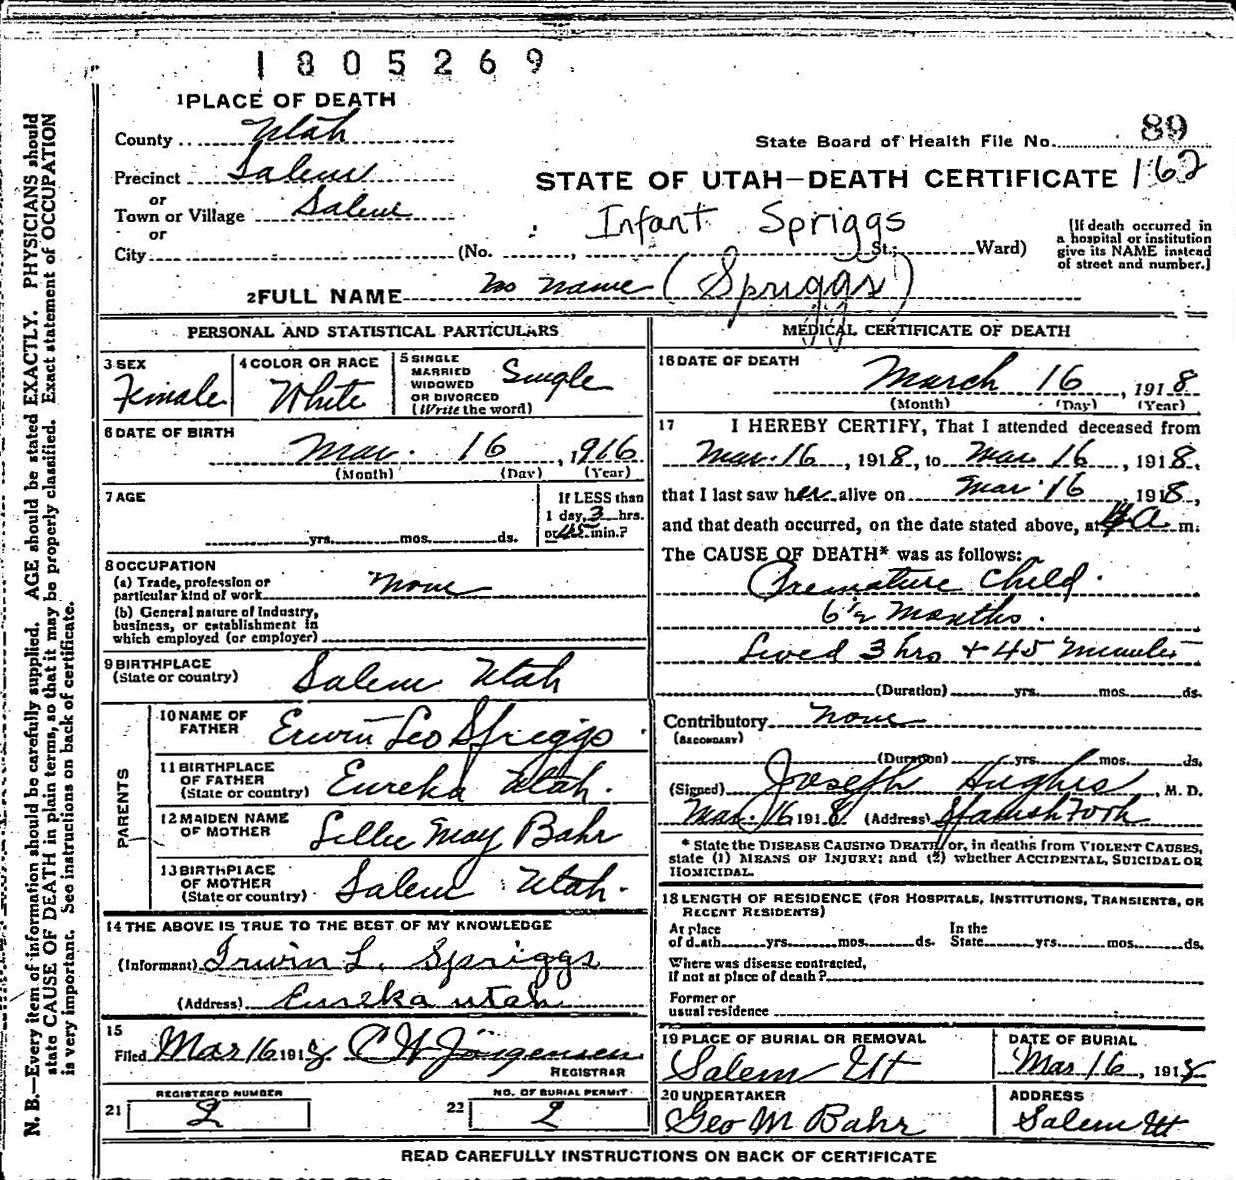 1805269
1 PLACE OF DEATH
County Utah
State Board of Health File No. 89
Precinct Salem
STATE OF UTAH—DEATH CERTIFICATE 162
or
Town or Village Salem
Infant Spriggs
or
City (No. , St.; Ward)
[If death occurred in
a hospital or institution
give its NAME instead
of street and number.]
2 FULL NAME no name (Spriggs)
PERSONAL AND STATISTICAL PARTICULARS
3 SEX
Female
4 COLOR OR RACE
White
5 SINGLE
MARRIED
WIDOWED
OR DIVORCED
(Write the word)
Single
6 DATE OF BIRTH
Mar. 16, 1916
(Month) (Day) (Year)
7 AGE
yrs. mos. ds.
If LESS than
1 day, 3 hrs.
or 45 min.?
8 OCCUPATION
(a) Trade, profession or
particular kind of work None
(b) General nature of Industry,
business, or establishment in
which employed (or employer)
9 BIRTHPLACE
(State or country) Salem Utah
PARENTS
10 NAME OF
FATHER Erwin Leo Spriggs
11 BIRTHPLACE
OF FATHER
(State or country) Eureka Utah.
12 MAIDEN NAME
OF MOTHER Lillie May Bahr
13 BIRTHPLACE
OF MOTHER
(State or country) Salem Utah.
14 THE ABOVE IS TRUE TO THE BEST OF MY KNOWLEDGE
(Informant) Irwin L. Spriggs
(Address) Eureka Utah
15
Filed Mar 16 1918 C W Jorgensen
REGISTRAR
REGISTERED NUMBER
21 2
NO. OF BURIAL PERMIT
22 2
MEDICAL CERTIFICATE OF DEATH
16 DATE OF DEATH
March 16, 1918
(Month) (Day) (Year)
17 I HEREBY CERTIFY, That I attended deceased from
Mar. 16, 1918, to Mar 16, 1918,
that I last saw her alive on Mar 16, 1918,
and that death occurred, on the date stated above, at 4 a m.
The CAUSE OF DEATH* was as follows:
Premature Child.
6½ Months.
Lived 3 hrs + 45 Minutes
(Duration) yrs. mos. ds.
Contributory None
(SECONDARY)
(Duration) yrs. mos. ds.
(Signed) Joseph Hughes, M. D.
Mar. 16 1918. (Address) Spanish Fork
* State the DISEASE CAUSING DEATH, or, in deaths from VIOLENT CAUSES,
state (1) MEANS OF INJURY; and (2) whether ACCIDENTAL, SUICIDAL OR
HOMICIDAL.
18 LENGTH OF RESIDENCE (FOR HOSPITALS, INSTITUTIONS, TRANSIENTS, OR
RECENT RESIDENTS)
At place
of death yrs. mos. ds.
In the
State yrs. mos. ds.
Where was disease contracted,
if not at place of death?
Former or
usual residence
19 PLACE OF BURIAL OR REMOVAL
Salem Ut
DATE OF BURIAL
Mar 16, 1918
20 UNDERTAKER
Geo M Bahr
ADDRESS
Salem Ut
READ CAREFULLY INSTRUCTIONS ON BACK OF CERTIFICATE
N. B.—Every item of information should be carefully supplied. AGE should be stated EXACTLY. PHYSICIANS should
state CAUSE OF DEATH in plain terms, so that it may be properly classified. Exact statement of OCCUPATION
is very important. See instructions on back of certificate.